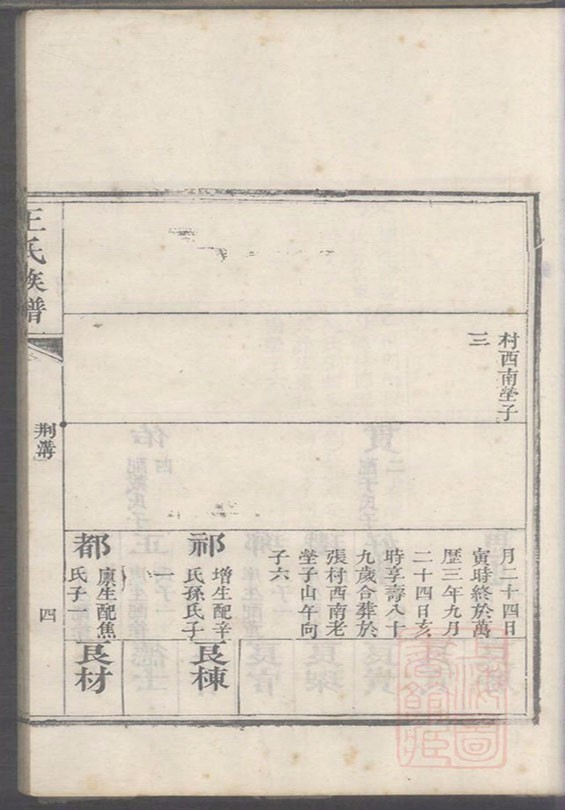 村西南塋子
三
月二十四日
寅時終於萬
歷三年九月
二十四日亥
時享壽八十
九歲合葬於
張村西南老
塋子山午向
子六
祁
增生配辛
氏孫氏子
一
良棟
都
廪生配焦
氏子一
良材
王氏族譜
荆溝
四